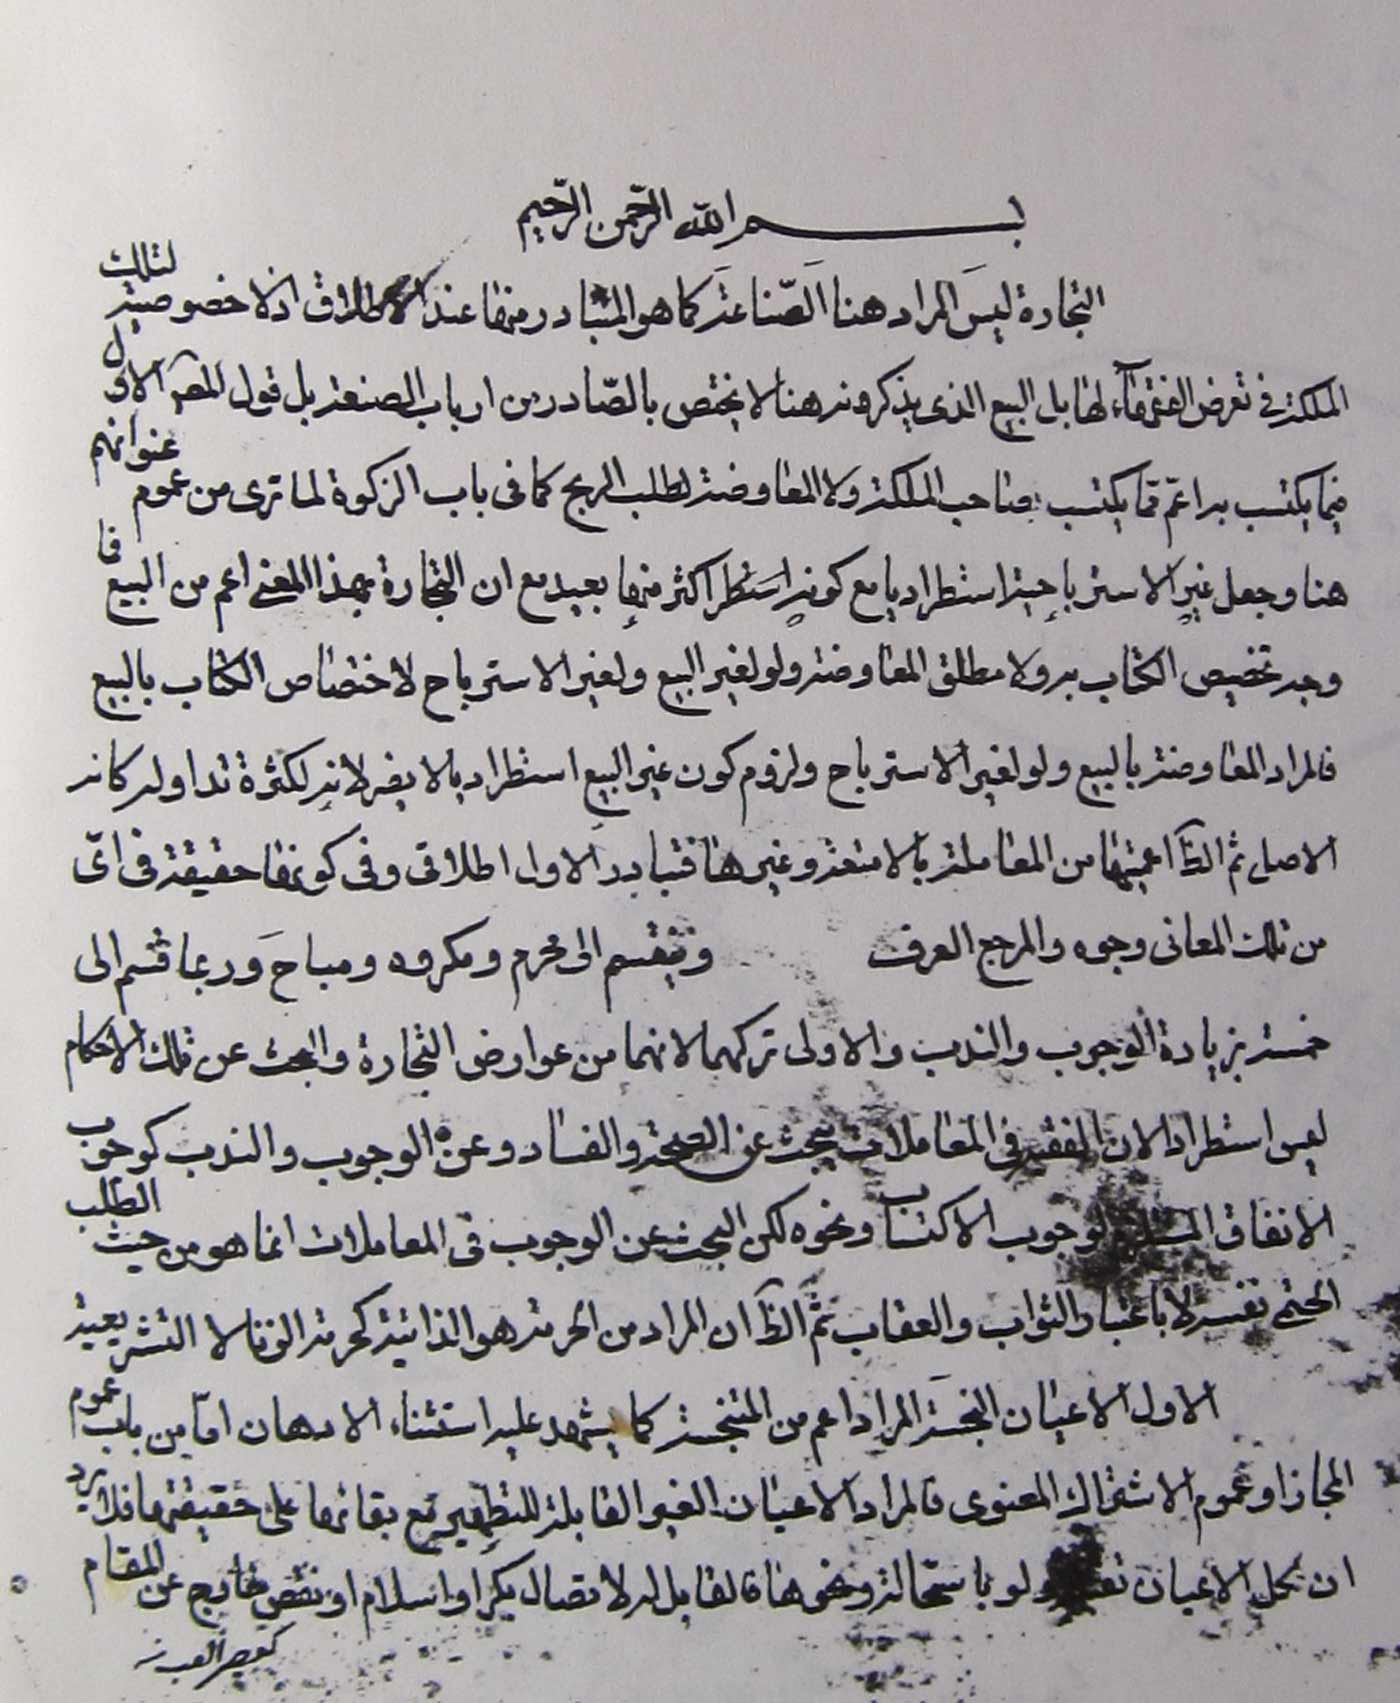 بسم الله الرّحمن الرّحيم
التجارة ليس المراد هنا الصّناعة كما هو المتبادر منها عند الاطلاق اذ لا خصوصية لتلك
الملكة في تعرض الفقهآء لها بل البيع الذى يذكرونه هنا لا يختص بالصّادر من ارباب الصنعة بل قول المص الاول
فيما يكتسب به اعمّ مما يكتسب به صاحب الملكة ولا المعاوضة لطلب الربح كما فى باب الزكوة لما ترى من عموم عنوانهم
هنا وجعل غير الاسترباحية استطراديا مع كونه اكثر منها بعيد مع ان التجارة بهذا المعنى اعم من البيع فما
وجه تخصيص الكتاب به ولا مطلق المعاوضة ولو لغير البيع ولغير الاسترباح لاختصاص الكتاب بالبيع
فالمراد المعاوضة بالبيع ولو لغير الاسترباح ولزوم كون غير البيع استطراديا لا يضر لانه لكثرة تداوله كانه
الاصل ثم الظآ اعميتها من المعاملة بالامتعة وغيرها فتبادر الاول اطلاقى وفى كونها حقيقة فى اىّ
من تلك المعانى وجوه والمرجع العرف وتنقسم الى محرم ومكروه ومباح وربما قسم الى
خمسة بزيادة الوجوب والندب والاولى تركهما لانهما من عوارض التجارة والبحث عن تلك الاحكام
ليس استطرادا لان الفقيه فى المعاملات يبحث عن الصحة والفساد وعن الوجوب والندب كوجوب
الانفاق لوجوب الاكتساب ونحوه لكن البحث عن الوجوب فى المعاملات انما هو من حيث الطلب
الحتمى نفسه لا باعتبار الثواب والعقاب ثم الظآ ان المراد من الحرمة هو الذاتية كحرمة الزنا لا التشريعية
الاول الاعيان النجسة المراد اعم من المتنجسة كما يشهد عليه استثناء الادهان امّا من باب عموم
المجاز او عموم الاشتراك المعنوى فالمراد الاعيان الغير القابلة للتطهير مع بقائها على حقيقتها فلا يرد
ان كل الاعيان ولو باستحالة ونحوها فالقابل له لاتصال بكر او اسلام او نقص خارج عن المقام
كعصير العنب